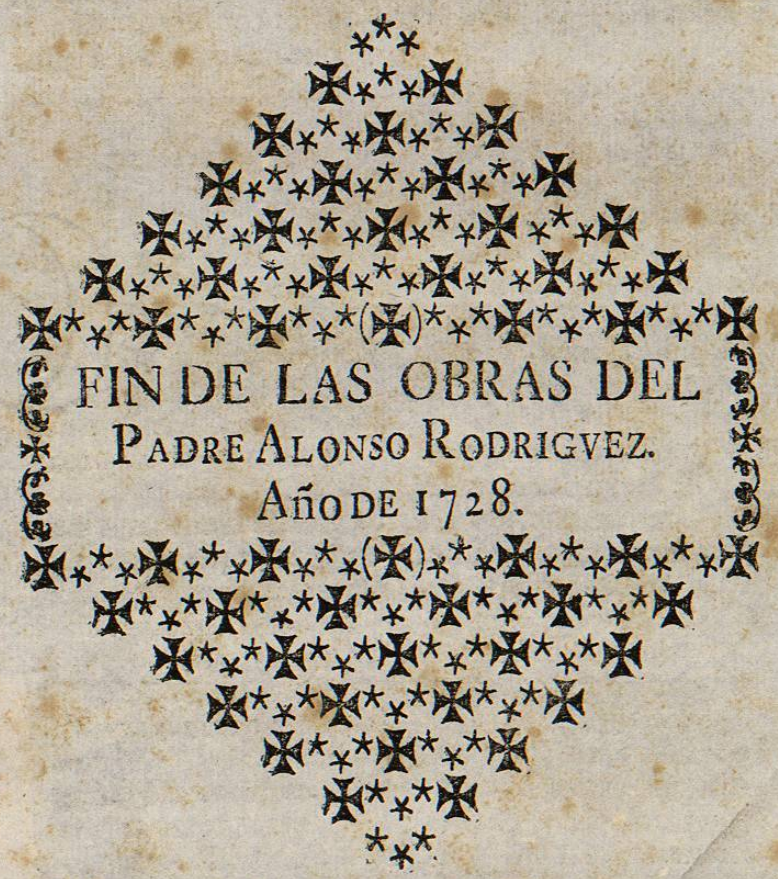 FIN DE LAS OBRAS DEL
PADRE ALONSO RODRIGVEZ.
Año DE 1728.